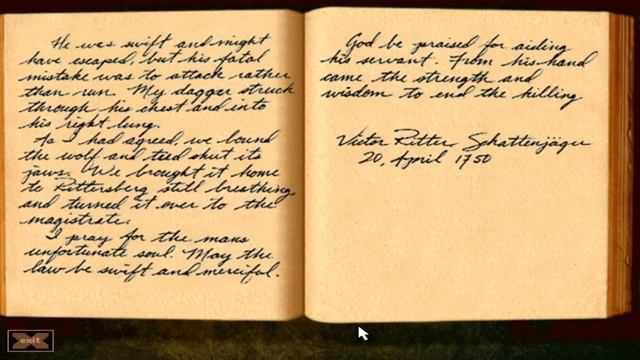 He was swift and might
have escaped, but his fatal
mistake was to attack rather
than run. My dagger struck
through his chest and into
his right lung.
As I had agreed, we bound
the wolf and tied shut its
jaws. We brought it home
to Rittersberg still breathing,
and turned it over to the
magistrate.
I pray for the mans
unfortunate soul. May the
law be swift and merciful.
God be praised for aiding
his servant. From his hand
came the strength and
wisdom to end the killing
Victor Ritter, Schattenjäger
20, April 1750
exit